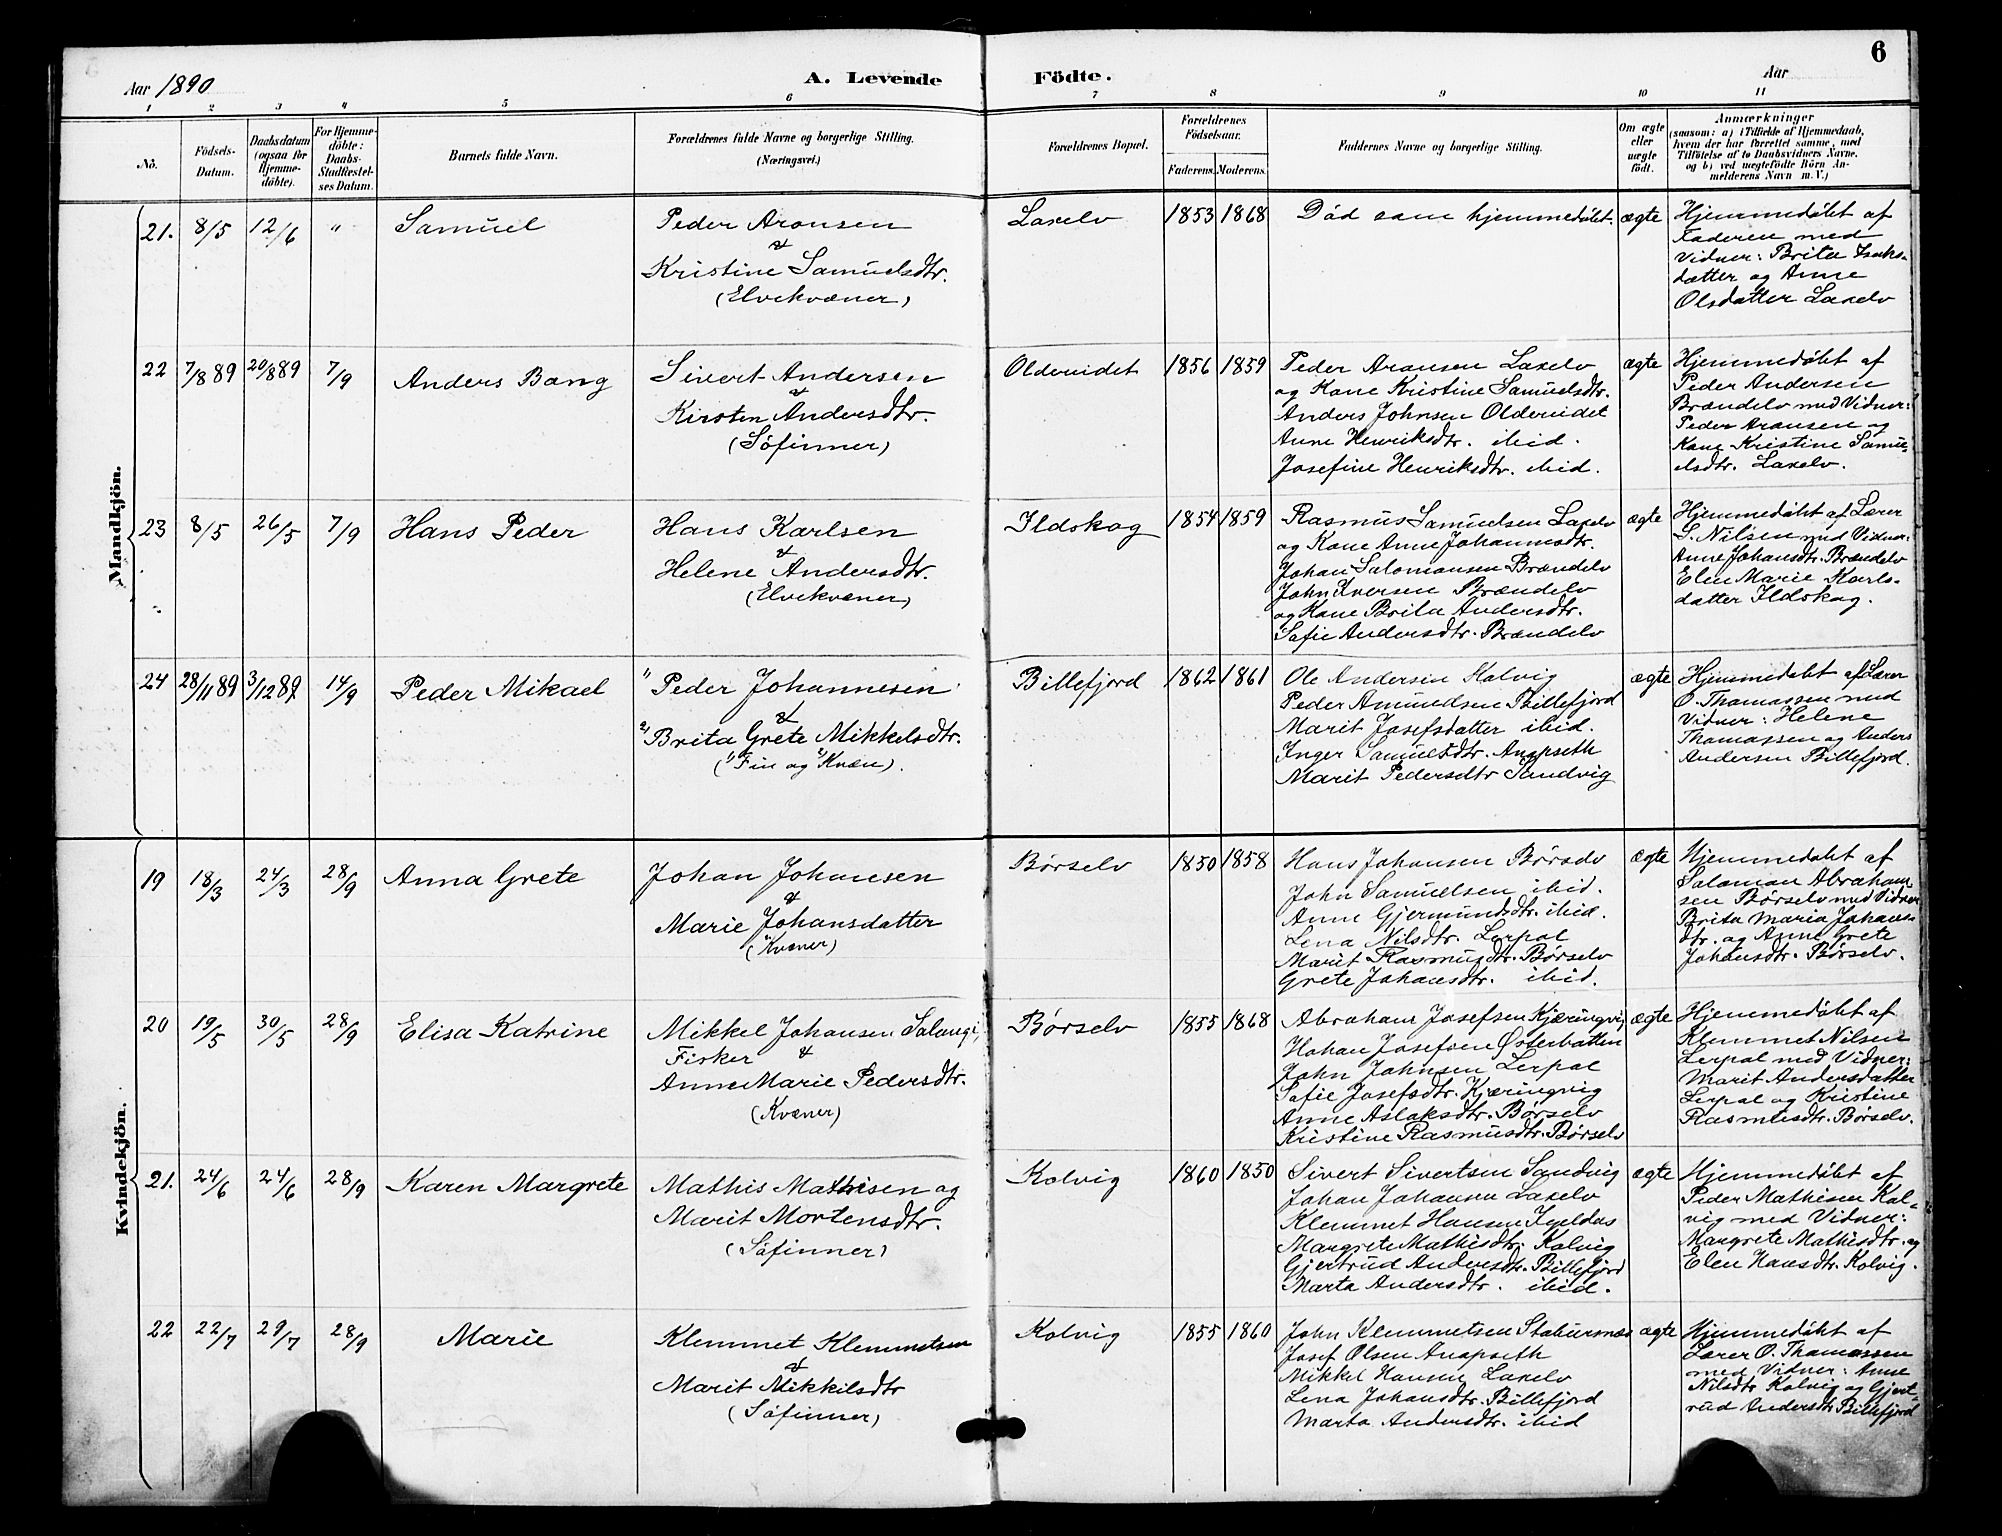 6
Aar 1890
A. Levende Födte.
Aar
1 2 3 4 5 6 7 8 9 10 11
No.
Födsels-
Datum.
Daabsdatum
(ogsaa for
Hjemme-
döbte).
For Hjemme-
döbte:
Daabs-
Stadfæstel-
ses Datum.
Barnets fulde Navn.
Forældrenes fulde Navne og borgerlige Stilling.
(Næringsvei.)
Forældrenes Bopæl.
Forældrenes
Födselsaar.
Faderens. Moderens.
Faddernes Navne og borgerlige Stilling.
Om ægte
eller
uægte
födt.
Anmærkninger
(saasom: a) i Tilfælde af Hjemmedaab,
hvem der har forrettet samme, med
Tilföielse af to Daabsvidners Navne,
og b) ved uægtefödte Börn An-
melderens Navn m. V.)
Mandkjön.
21. 8/5 12/6 " Samuel
Peder Aronsen
&
Kristine Samuelsdtr.
(Elvekvæner)
Laxelv 1853 1868
Död som hjemmedøbt.
ægte
Hjemmedøbt af
Faderen med
Vidner: Brita Isaks-
datter og Anne
Olsdatter Laxelv
22 7/8 89 20/8 89 7/9 Anders Bang
Sivert Andersen
&
Kirsten Andersdtr.
(Söfinner)
Oldervidet 1856 1859
Peder Aronsen Laxelv
og Kone Kristine Samuelsdtr.
Anders Johnsen Oldervidet
Anne Henriksdtr. ibid.
Josefine Henriksdtr. ibid.
ægte
Hjemmedøbt af
Peder Andersen
Brændelv med Vidner:
Peder Aronsen og
Kone Kristine Samu-
elsdtr. Laxelv.
23 8/5 26/5 7/9 Hans Peder
Hans Karlsen
&
Helene Andersdtr.
(Elvekvæner)
Ildskog 1854 1859
Rasmus Samuelsen Laxelv
og Kone Anne Johannesdtr.
Johan Salomonsen Brændelv
John Iversen Brændelv
og Kone Brita Andersdtr.
Sofie Andersdtr. Brændelv
ægte
Hjemmedøbt af Lærer
S. Nilsen med Vidner:
Anne Johansdtr. Brændelv
Elen Marie Karls-
datter Ildskog.
24 28/11 89 3/12 89 14/9 Peder Mikael
"Peder Johannesen
&
"Brita Grete Mikkelsdtr.
("Fin og "Kvæn).
Billefjord 1862 1861
Ole Andersen Kolvig
Peder Amundsen Billefjord
Marit Josefsdatter ibid.
Inger Samuelsdtr. Anapseth
Marit Pedersdtr Sandvig
ægte
Hjemmedøbt af Lærer
O. Thomassen med
Vidner: Helene
Thomassen og Anders
Andersen Billefjord.
Kvindekjön.
19 18/3 24/3 28/9 Anna Grete
Johan Johansen
&
Marie Johansdatter
("Kvæner)
Børselv 1850 1858
Hans Johansen Børselv
John Samuelsen ibid.
Anne Gjermundsdtr. ibid.
Lena Nilsdtr. Lerpol
Marit Rasmusdtr. Børselv
Grete Johansdtr. ibid.
ægte
Hjemmedøbt af
Salomon Abraham-
sen Børselv med Vidner
Brita Maria Johans-
dtr. og Anne Grete
Johansdtr. Børselv.
20 19/5 30/5 28/9 Elisa Katrine
Mikkel Johansen Salangi,
Fisker &
Anne Marie Pedersdtr.
(Kvæner)
Børselv 1855 1868
Abraham Josefsen Kjæringvig
Hohan Josefsen Østerbotten
John Johnsen Lerpol
Sofie Josefsdtr. Kjæringvig
Anne Aslaksdtr. Børselv
Kristine Rasmusdtr. Børselv
ægte
Hjemmedøbt af
Klemmet Nilsen
Lerpol med Vidner:
Marit Andersdatter
Lerpol og Kristine
Rasmusdtr. Børselv.
21. 24/6 24/6 28/9 Karen Margrete
Mathis Mathisen og
Marit Mortensdtr.
(Söfinner)
Kolvig 1860 1850
Sivert Sivertsen Sandvig
Johan Johansen Laxelv
Klemmet Hansen
Margrete Mathisdtr. Kolvig
Gjertrud Andersdtr. Billefjord
Marta Andersdtr. ibid.
ægte
Hjemmedøbt af
Peder Mathisen Kol-
vig med Vidner:
Margrete Mathisdtr. og
Elen Hansdtr. Kolvig.
22 22/7 29/7 28/9 Marie
Klemmet Klemmetsen
&
Marit Mikkelsdtr
(Söfinner)
Kolvig 1855 1860
John Klemmetsen Stabursnæs
Josef Olsen Anapseth
Mikkel Hansen Laxelv
Lena Johansdtr. Billefjord
Marta Andersdtr. ibid
ægte
Hjemmedøbt af
Lærer O. Thomassen
med Vidner: Anne
Nilsdtr Kolvig og Gjert-
rud Andersdtr Billefjord